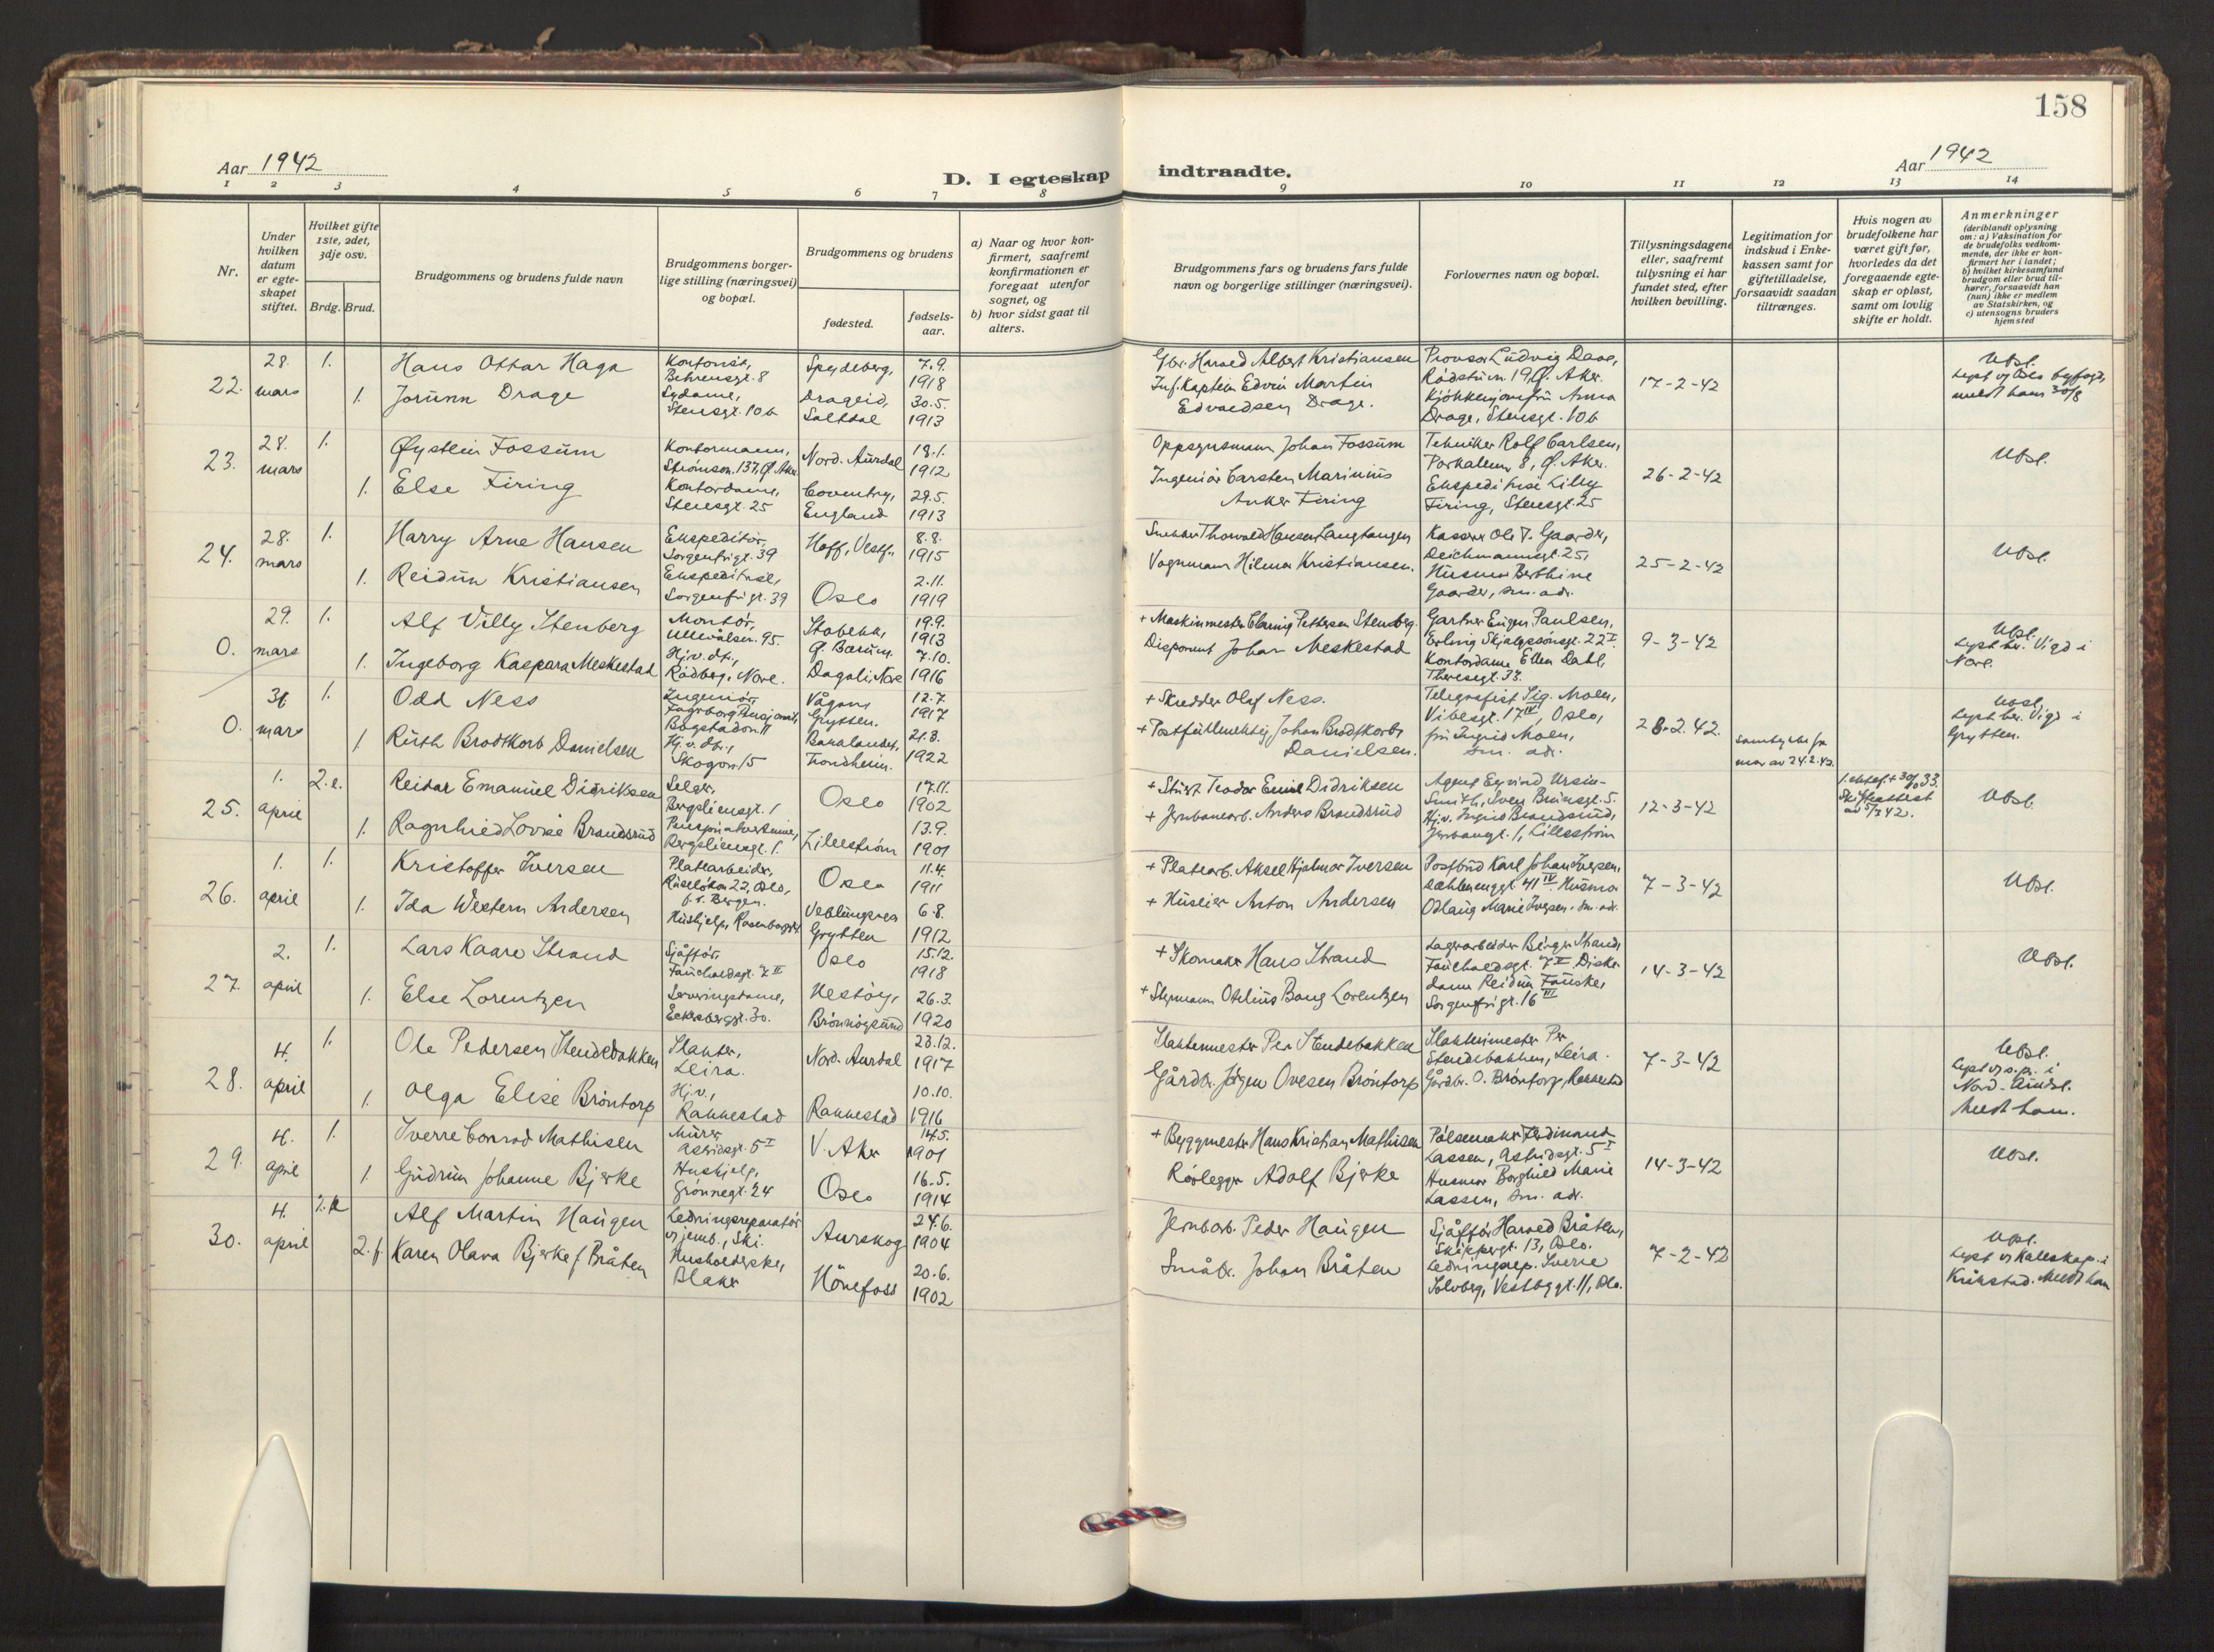 158
Aar 1942
D. I egteskap indtraadte.
Aar 1942
1 2 3 4 5 6 7 8 9 10 11 12 13 14
Nr.
Under hvilken datum er egteskapet stiftet.
Hvilket gifte 1ste, 2det, 3dje osv.
Brdg. Brud.
Brudgommens og brudens fulde navn
Brudgommens borgerlige stilling (næringsvei) og bopæl.
Brudgommens og brudens
fødested.
fødselsaar.
a) Naar og hvor konfirmert, saafremt konfirmationen er foregaat utenfor sognet, og
b) hvor sidst gaat til alters.
Brudgommens fars og brudens fars fulde navn og borgerlige stillinger (næringsvei).
Forlovernes navn og bopæl.
Tillysningsdagene eller, saafremt tillysning ei har fundet sted, efter hvilken bevilling.
Legitimation for indskud i Enkekassen samt for giftetilladelse, forsaavidt saadan tiltrænges.
Hvis nogen av brudefolkene har været gift før, hvorledes da det foregaaende egteskap er opløst, samt om lovlig skifte er holdt.
Anmerkninger (deriblandt oplysning om: a) Vaksination for de brudefolks vedkommende, der ikke er konfirmert her i landet; b) hvilket kirkesamfund brudgom eller brud tilhører, forsaavidt han (hun) ikke er medlem av Statskirken, og c) utensogns bruders hjemsted
22. 28. mars 1. Hans Ottar Haga Kontorist, Behrensgt. 8 Spydeberg, 7.9. 1918
1. Jorunn Drage Sydame, Stensgt. 10b Drageid, Saltdal 30.5. 1913
Gbr. Harald Albert Kristiansen
Inf. Kaptein Edvin Martin Edvardsen Drage.
Provisor Ludvig Daae, Rådstuvn. 19, Ø. Aker.
Kjøkkenjomfru Anna Drage, Stensgt. 10b
17-2-42
Ubsl.
23. 28. mars 1. Øystein Fossum Kontormann, Strømsvn. 137, Ø. Aker Nord. Aurdal 18.1. 1912
1. Else Firing Kontordame, Stensgt. 25 Coventry, England 29.5. 1913
Oppsynsmann Johan Fossum
Ingeniør Carsten Marinius Anker Firing
Tekniker Rolf Carlsen, 8, Ø. Aker.
Ekspeditrise Lilly Firing, Stensgt. 25
26-2-42
Ubsl.
24. 28. mars 1. Harry Arne Hansen Ekspeditør, Sorgenfrigt. 39 Hoff, Vestf., 8.8. 1915
1. Reidun Kristiansen Ekspeditrise, Sorgenfrigt. 39 Oslo 2.11. 1919
Thorvald Hansen Langtangen
Vognmann Hilmar Kristiansen.
Kasserer Ole T. Gaarder, Deichmannsgt. 25,
Husmor Berthine Gaarder, sm. adr.
25-2-42
Ubsl.
0. 29. mars 1. Alf Villy Stenberg Montør, Ullevålsvn. 95. Stabekk, Ø. Bærum. 19.9. 1913
1. Ingeborg Kaspara Meskestad Hj.v. dt., Rødberg, Nore. Dagali, Nore 7.10. 1916
+ Maskinmester Pettersen Stenberg.
Disponent Johan Meskestad
Gartner Eugen Paulsen, Erling Skjalgssønsgt. 22 I
Kontordame Ellen Dahl, Theresegt. 33.
9-3-42
Ubsl. Lyst bv. Vigd i Nore.
0. 31. mars 1. Odd Ness Ingeniør, Bogstadvn 11 Vågan, Grytten. 12.7. 1917
1. Ruth Brodtkorb Danielsen Hj.v. dt., Skogvn. 15 Bakalandet, Trondheim. 21.8. 1922
+ Skredder Olaf Ness.
+ Postfullmektig Johan Brodtkorb Danielsen.
Telegrafist Sig. Moen, Vibesgt. 17 IV, Oslo,
fru Ingrid Moen, sm. adr.
28.2.42.
Samtykke fra mor av 24.2.42.
Ubsl, Lyst bv. Vigd i Grytten.
25. 1. april 2. e. Reidar Emanuel Didriksen Selger, Bergsliensgt. 1 Oslo 17.11. 1902
1. Ragnhild Lovise Brandsrud Pensjonatvertinne, Bergsliensgt. 1. Lillestrøm 13.9. 1901
+ Stuert Teodor Emil Didriksen
+ Jernbanearb. Anders Brandsrud
Agent Eyvind Ursin-Smith, Sven Brunsgt. 5.
Hj.v. Ingrid Brandsrud, Jernbanegt. 1, Lillestrøm
12-3-42
Ubsl.
26. 1. april 1. Kristoffer Iversen Platearbeider, Ruseløkvn 22, Oslo, f.t. Bergen. Oslo 11.4. 1911
1. Ida Western Andersen Hushjelp, Veblungsnes Grytten 6.8. 1912
+ Platearb. Aksel Hjalmar Iversen
+ Huseier Anton Andersen
Postbud Karl Johan Iversen, Dæhlenenggt. 41 IV. Husmor
Odlaug Marie Iversen. sm. adr.
7-3-42
Ubsl.
27. 2. april 1. Lars Kaare Strand Sjåfør, Fauchaldsgt. 7 II Oslo 15.12. 1918
1. Else Lorentzen Serveringsdame, Eckersbergsgt. 30. Brønnøysund 26.3. 1920
+ Skomaker Hans Strand
+ Styrmann Otelius Bang Lorentzen
Lagerarbeider Birger Strand, Fauchaldsgt. 7 II. Diskedame Reidun Fauske, Sorgenfrigt. 16 III
14-3-42
Ubsl.
28. 4. april 1. Ole Pedersen Stendebakken Slakter, Leira. Nord. Aurdal 28.12. 1917
1. Olga Elise Brøntorp Hj.v., Rakkestad Rakkestad 10.10. 1916
Slaktermester Per Stendebakken
Gårdbr. Jørgen Ovesen Brøntorp
Slaktermester Per Stendebakken, Leira.
Gårdbr. O. Brøntorp, Rakkestad
7-3-42
Ubsl.
29. 4. april 1. Sverre Conrad Mathisen Murer, Astridsgt. 5 I V. Aker 14.5. 1901
1. Gudrun Johanne Bjerke Hushjelp, Grønnegt. 24 Oslo 16.5. 1914
+ Byggmester Hans Kristian Mathisen
Rørlegger Adolf Bjerke
Pølsemaker Ferdinand Lassen, Astridsgt. 5 I
Husmor Borghild Marie Lassen, sm. adr.
14-3-42
Ubsl.
30. 4. april Alf Martin Haugen Ledningsreparatør v/jernb., Ski. Aurskog 24.6. 1904
2. f. Karen Olava Bjerke f. Bråten Husholderske, Blaker Hönefoss 20.6. 1902
Jernbarb. Peder Haugen
Småbr. Johan Bråten
Sjåfør Harald Bråten, Skippergt. 13, Oslo.
Ledningsrep. Sverre Solberg, Vestbygt. 11, Oslo.
7-2-42
Ubsl.